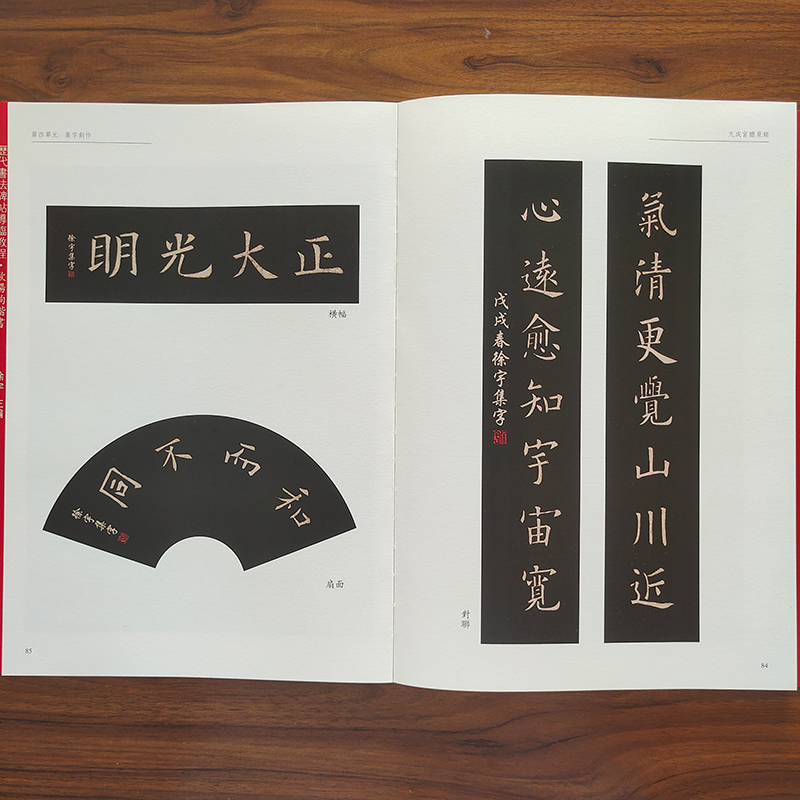 九成宮醴泉銘
氣清更覺山川近
心遠愈知宇宙寬
戊戌春徐宇集字
對聯
84
第四單元·集字創作
正大光明
徐宇集字
橫幅
和而不同
徐宇集字
扇面
85
歷代書法碑帖導臨教程·歐陽詢楷書
徐宇 主編